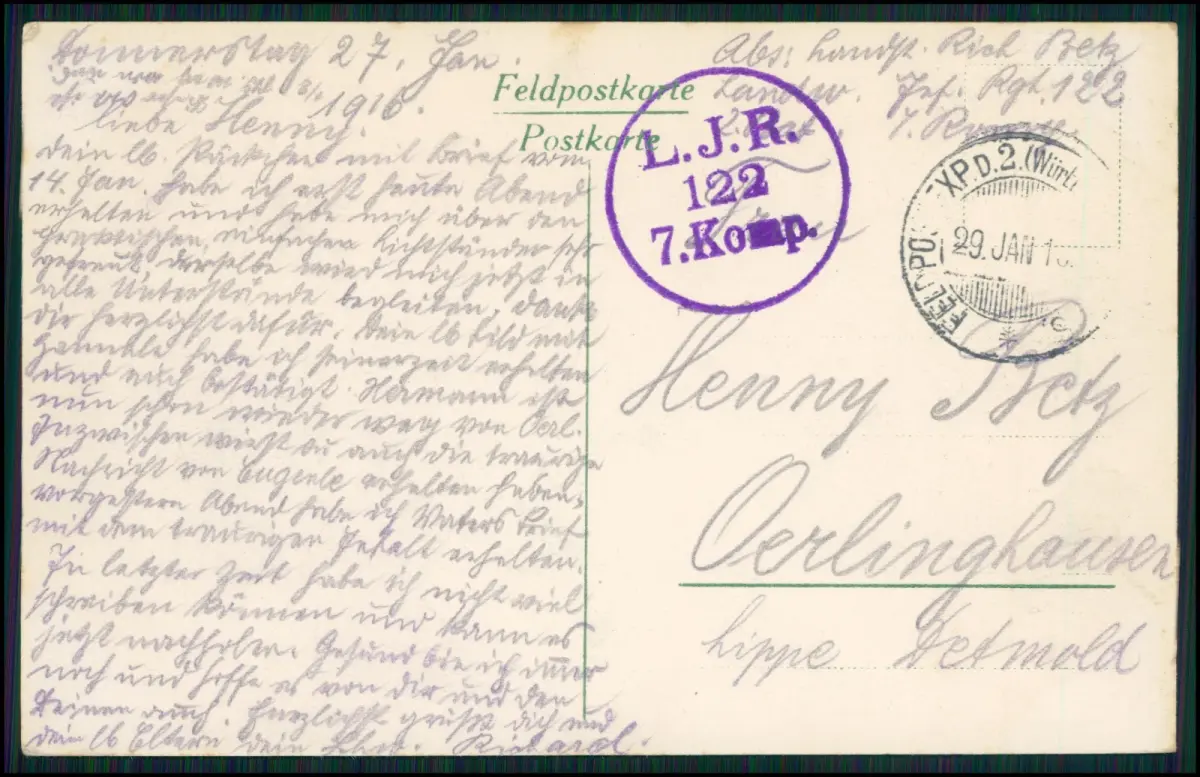 Donnerstag 27. Jan.
1916.
liebe Henny.
dein lb. Päckchen mit Brief vom
14. Jan. habe ich erst heute Abend
erhalten und habe mich über den
praktischen, einfachen Lichtständer sehr
gefreut, derselbe wird mich jetzt in
alle Unterstände begleiten, danke
dir herzlichst dafür. Dein lb Bild mit
habe ich seinerzeit erhalten
und auch bestätigt. Hermann ist
nun schon wieder weg von Oerl.
Inzwischen wirst du auch die traurige
Nachricht von erhalten haben,
vorgestern Abend habe ich Vaters Brief
mit dem traurigen Inhalt erhalten.
In letzter Zeit habe ich nicht viel
schreiben können und kann es
jetzt nachholen. Gesund bin ich immer
noch und hoffe es von dir und den
Deinen auch. Herzlichst grüßt dich und
dein lb Eltern dein Richard.
Feldpostkarte
Postkarte
Abs: Landst. Rich Betz
Landw. Inf. Rgt. 122
7. Komp.
L.J.R.
122
7.Komp.
FELDPOSTEXP.D.2.(Württ
29. JAN 1
Henny Betz
Oerlinghausen
Lippe Detmold